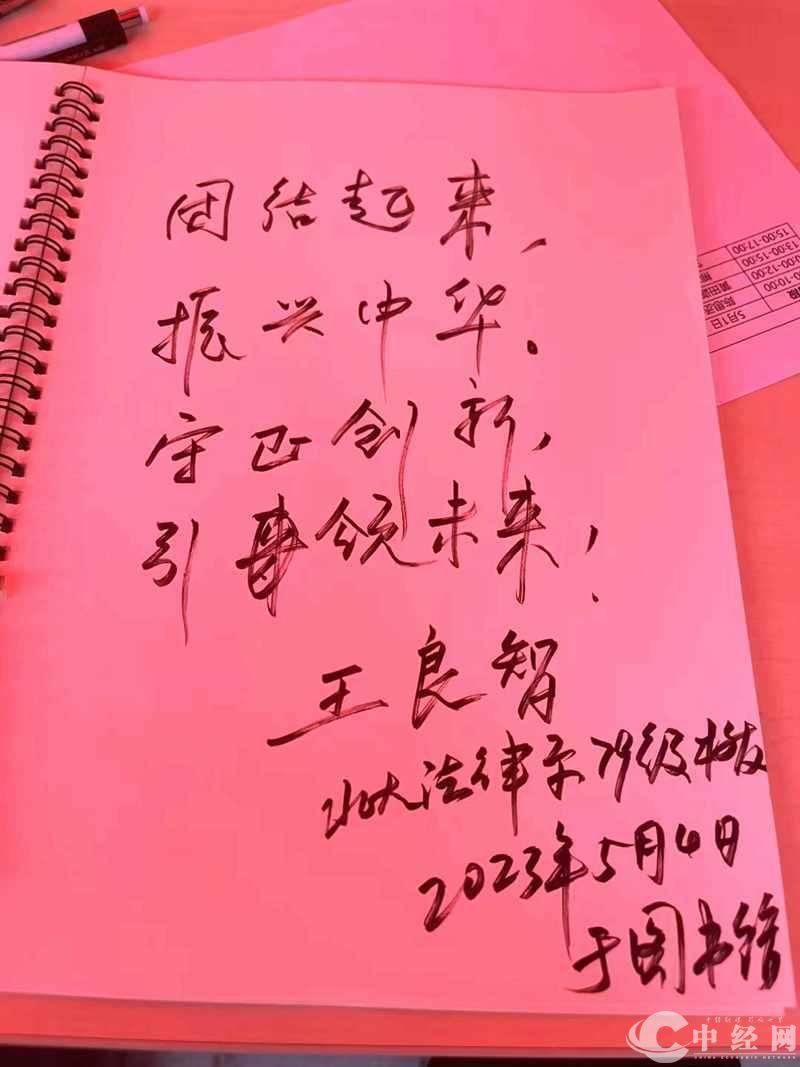 团结起来,
振兴中华.
守正创新,
引事领未来!
王良智
北大法律系79级校友
2023年5月4日
于图书馆
15:00-17:00
13:00-15:00
0:00-12:00
0-10:00
5月1日
中经网
CHINA ECONOMIC NETWORK